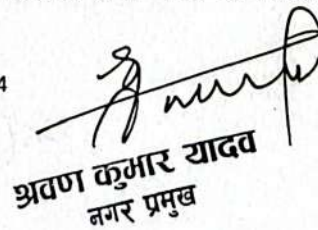 4
श्रवण कुमार यादव
नगर प्रमुख